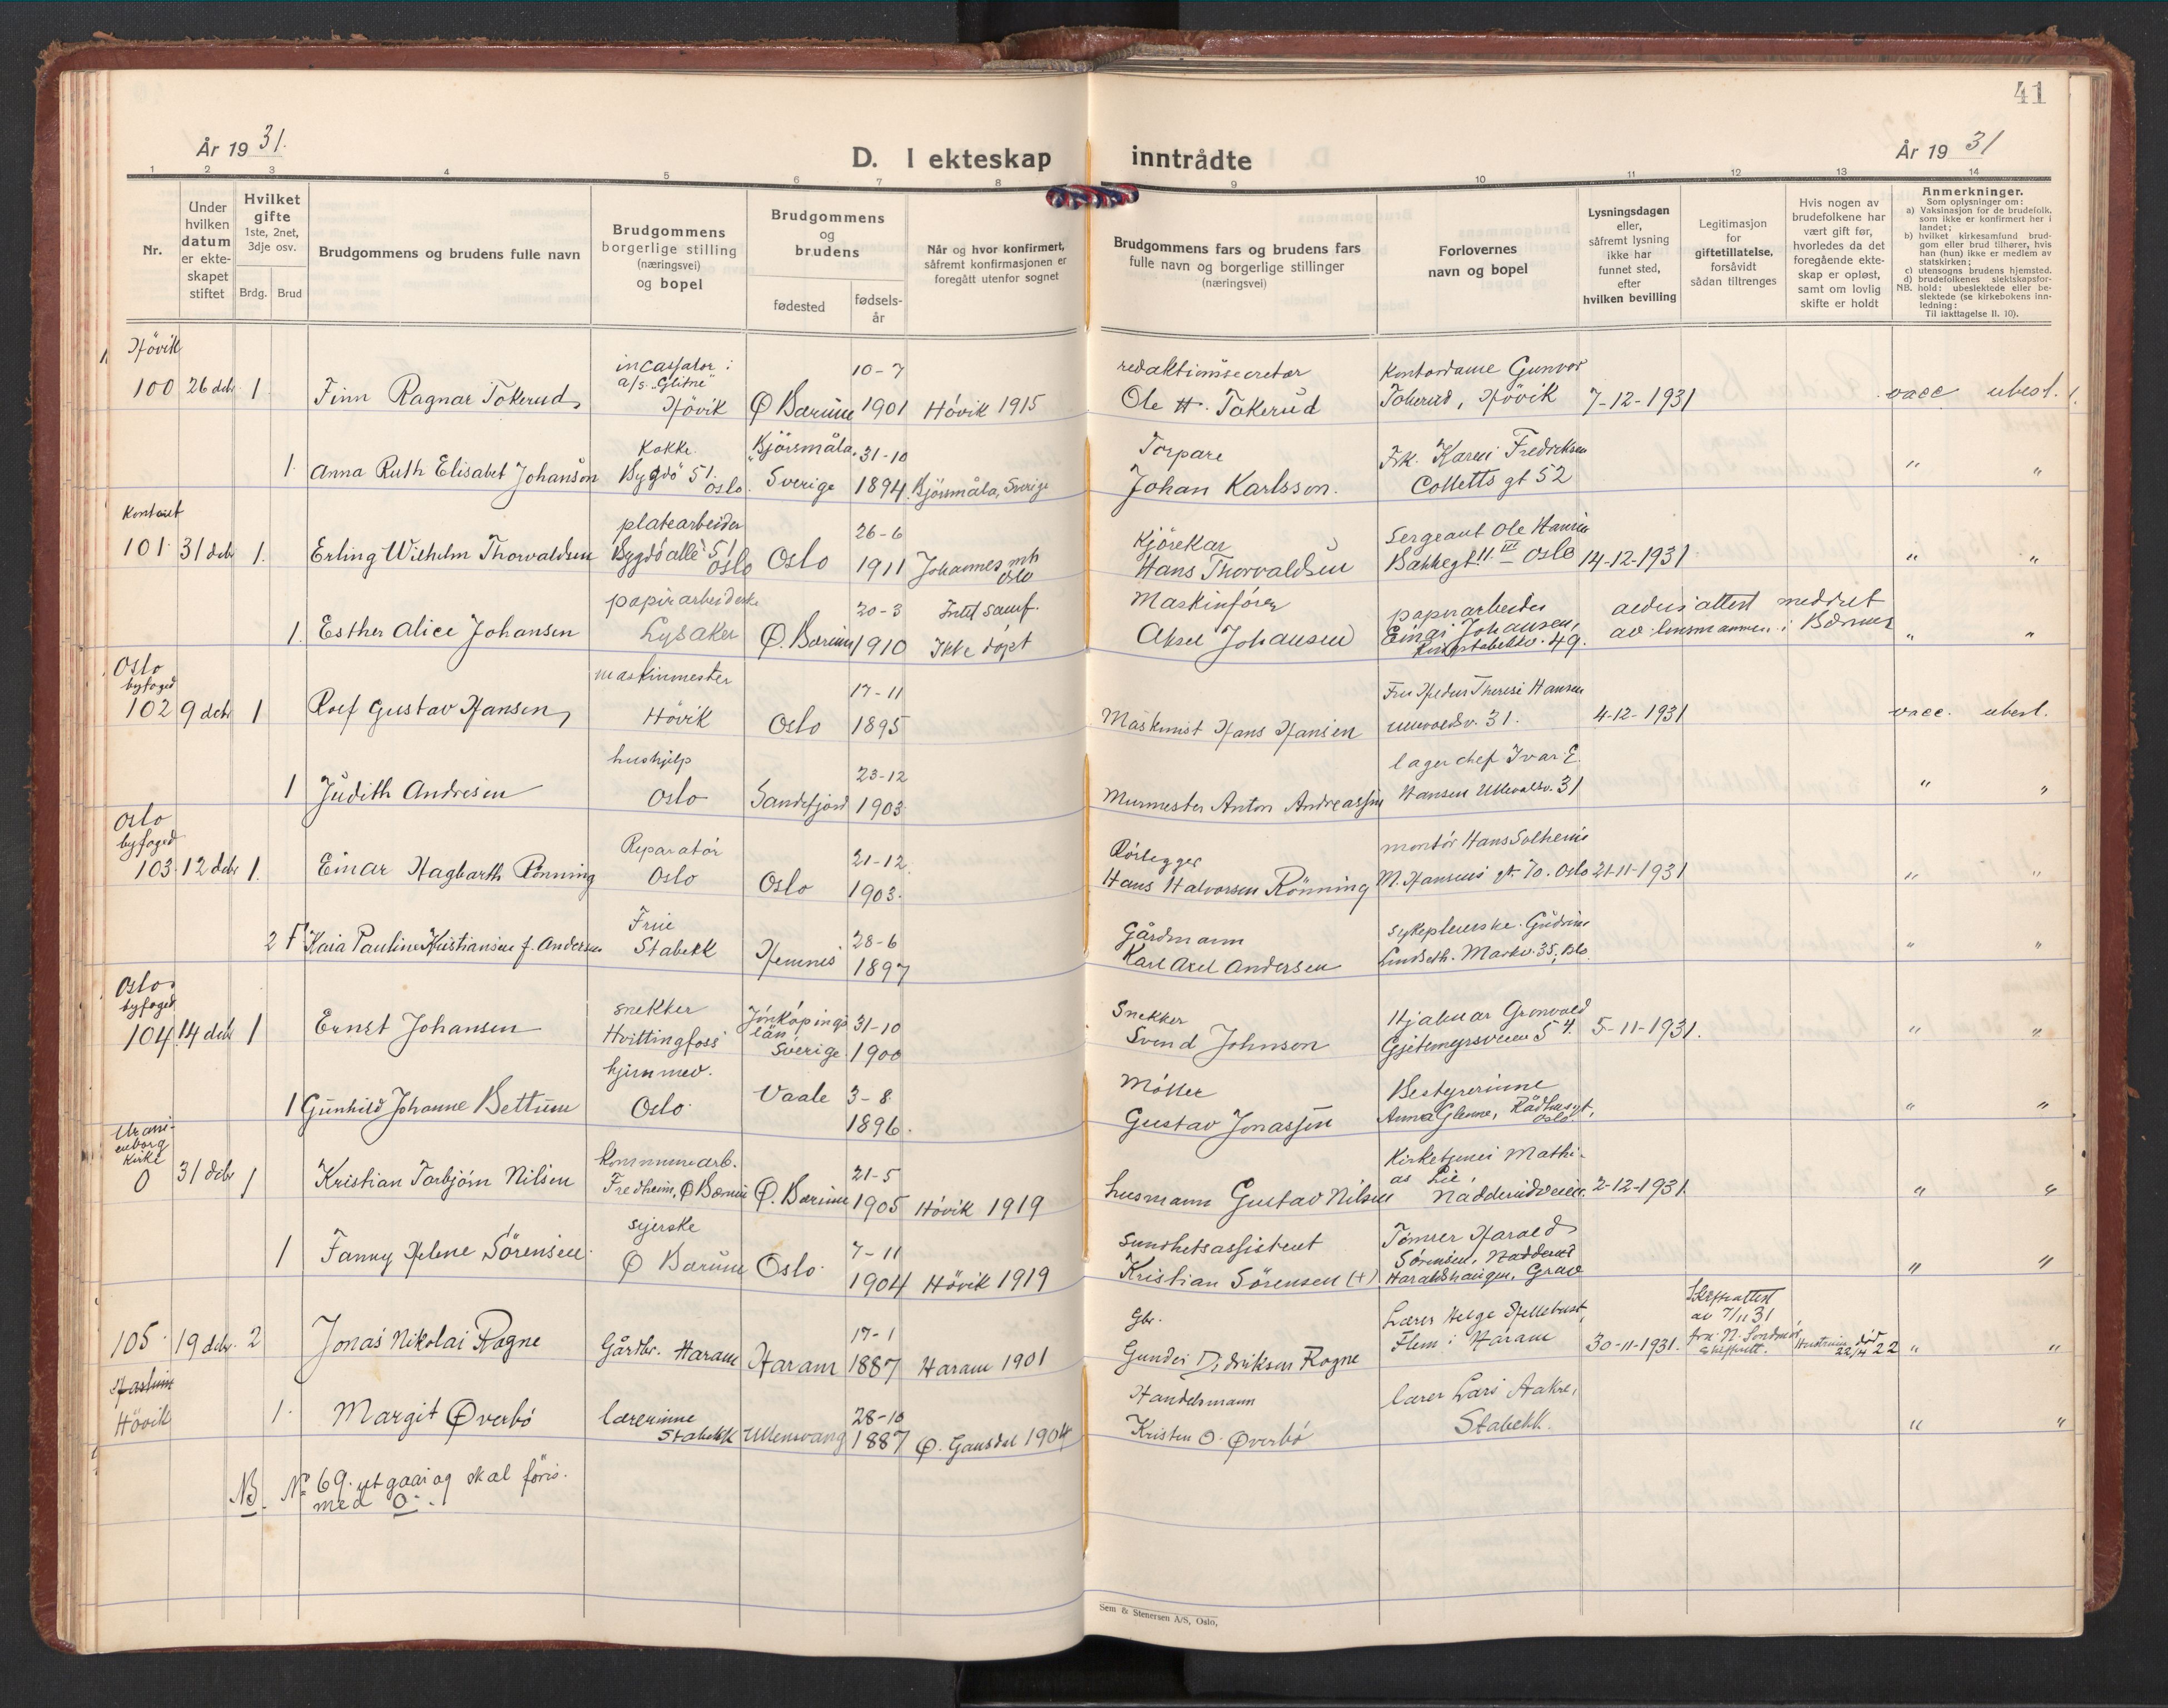 41
År 19 31.
D. I ekteskap inntrådte
År 19 31
1 2 3 4 5 6 7 8 9 10 11 12 13 14
Nr.
Under hvilken datum er ekteskapet stiftet
Hvilket gifte 1ste, 2net, 3dje osv.
Brdg. Brud
Brudgommens og brudens fulle navn
Brudgommens borgerlige stilling (næringsvei) og bopel
Brudgommens og brudens
fødested
fødsels-år
Når og hvor konfirmert, såfremt konfirmasjonen er foregått utenfor sognet
Brudgommens fars og brudens fars fulle navn og borgerlige stillinger (næringsvei)
Forlovernes navn og bopel
Lysningsdagen eller, såfremt lysning ikke har funnet sted, efter hvilken bevilling
Legitimasjon for giftetillatelse, forsåvidt sådan tiltrenges
Hvis nogen av brudefolkene har vært gift før, hvorledes da det foregående ekteskap er opløst, samt om lovlig skifte er holdt
Anmerkninger.
Som oplysninger om:
a) Vaksinasjon for de brudefolk. som ikke er konfirmert her i landet;
b) hvilket kirkesamfund brudgom eller brud tilhører, hvis han (hun) ikke er medlem av statskirken;
c) utensogns brudens hjemsted.
d) brudefolkenes slektskapsforhold: ubeslektede eller beslektede (se kirkebokens innledning:
NB.
Til iakttagelse II. 10).
Hövik
100 26 debr 1 Finn Ragnar Tokerud, incassator i a/s. "Glitne" Hövik Ø Bærum 10-7 1901 Hövik 1915 redaktionssecretær Ole H. Tokerud Kontordame Gunvor Tokerud, Hövik 7-12-1931 vacc ubesl.
1. Anna Ruth Elisabet Johanson Kokke Bygdö 51. Oslo. Kjörsmåla, Sverige 31-10 1894. Kjörsmåla, Sverige Torpare Johan Karlsson. Frk. Karen Fredriksen Colletts gt 52 " "
Kontoret
101 31 debr 1. Erling Wilhelm Thorvaldsen platearbeider Bygdö allé 51 Oslo Oslo 26-6 1911 Johannes mh Oslo Kjörekar Hans Thorvaldsen Sergeant Ole Hansen Bakkegt. 11 III Oslo 14-12-1931 " "
1. Esther Alice Johansen papirarbeiderske Lysaker Ø. Bærum 20-3 1910 Intet samf. Ikke döpt Maskinförer Aksel Johansen papirarbeider Einar Johansen, 49. attest meddelt av lensmannen i Bærum " "
Oslo byfoged
102 9 debr 1 Rolf Gustav Hansen, maskinmester Hövik Oslo 17-11 1895 Maskinist Hans Hansen Fru Theresi Hansen Ullevoldsv. 31. 4-12-1931 vacc. ubesl.
1 Judith Andresen hushjelp Oslo Sandefjord 23-12 1903 Murmester Anton Andreassen lagerchef Ivar E. Hansen Ullevolsv. 31 " "
Oslo byfoged
103. 12 debr 1. Einar Hagbarth Rönning Reparatör Oslo Oslo 21-12 1903. Rörlegger Hans Halvorsen Rönning montör Hans Solheim M. Hansens gt. 70. Oslo 21-11-1931 " "
2 F Kaia Pauline Kristiansen f. Andersen Frue Stabekk Hemnes 28-6 1897 Gårdmann Karl Axel Andersen sykepleierske. Gudrun Lindseth. Markv. 35, Oslo. " "
Oslo byfoged
104 14 debr 1 Ernst Johansen snekker Hvittingfoss Jönköpings län Sverige 31-10 1900 Snekker Svend Johnson Hjalmar Gronvold Gjetemyrsveien 54. 5-11-1931. " "
1 Gunhild Johanne Bettum hjemmev. Oslo Vaale 3-8 1896. Möller Gustav Jonassen Bestyrerinne Anna Glenne, Rådhusgt, Oslo. " "
Uranienborg Kirke
0 31 debr 1 Kristian Torbjörn Nilsen kommunearb. Fredheim, Ø Bærum Ø. Bærum 21-5 1905 Hövik 1919 husmann Gustav Nilsen Kirketjener Mathias Lie, Nadderudveien 2-12-1931 " "
1 Fanny Helene Sörensen. syerske Ø Bærum Oslo. 7-11 1904 Hövik 1919 Sundhetsassistent Kristian Sörensen (+) Tömrer Harald Sörensen, Nadderud Haraldshaugen, Grav " "
105. 19 debr. 2 Jonas Nikolai Rogne Gårdbr. Haram Haram 17-1 1887 Haram 1901 Gbr. Gunder Didriksen Rogne Lærer Helge Hellebust, Flem i Haram 30-11-1931. Skifteattest av 7/11 31 fra N. Sundmör skifterett. Hustruen död 22/4 22 " "
Haslum
Hövik 1. Margit Øverbö lærerinne Stabekk Ullensvang 28-10 1887 Ø. Gausdal 1904 Handelsmann Kristen O. Øverbö lærer Lars Aakre, Stabekk. " "
NB. No 69. utgaar og skal föres. med 0.
Sem & Stenersen A/S, Oslo,